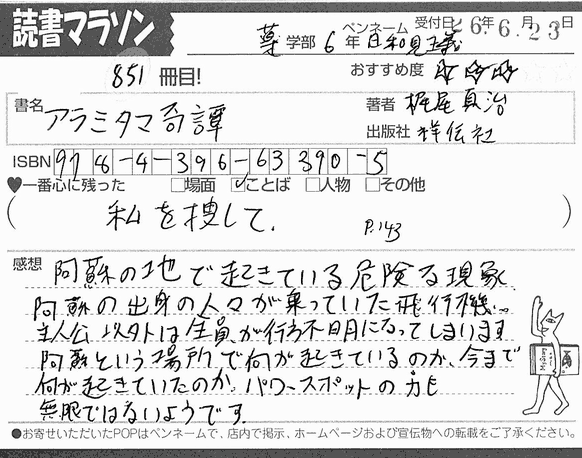 読書マラソン
受付日 26年6月23日
薬学部 6年 ペンネーム 日和見主義
851冊目!
おすすめ度 ☆☆☆
書名 アラミタマ奇譚
著者 梶尾真治
出版社 祥伝社
ISBN 978-4-396-63390-5
♥一番心に残った □場面 ☑ことば □人物 □その他
(私を捜して. P.143)
感想 阿蘇の地で起きている危険な現象
阿蘇の出身の人々が乗っていた飛行機…
主人公以外は全員が行方不明になってしまいます
阿蘇という場所で何が起きているのか、今まで
何が起きていたのか。パワースポットの力も
無限ではないようです
●お寄せいただいたPOPはペンネームで、店内で掲示、ホームページおよび宣伝物への転載をご了承ください。